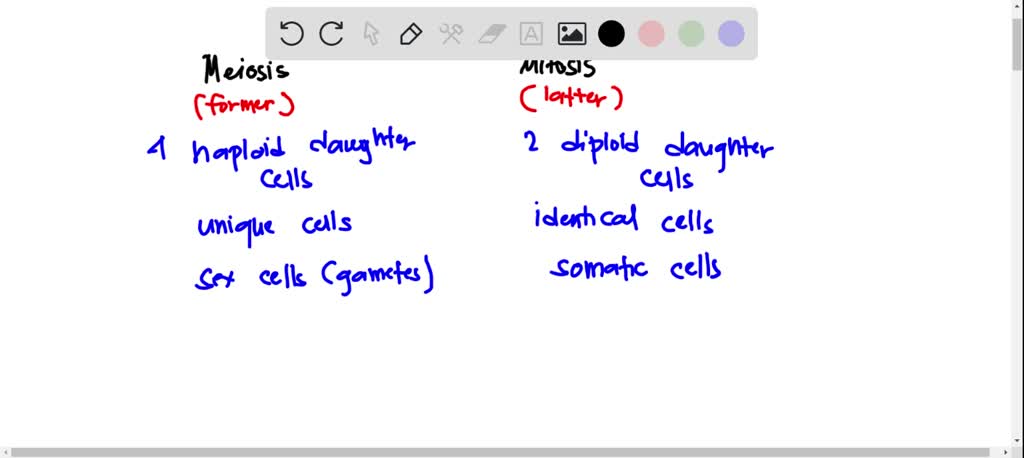 Meiosis
(former)
4 haploid daughter
cells
unique cells
sex cells (gametes)
Mitosis
(latter)
2 diploid daughter
cells
identical cells
somatic cells
A